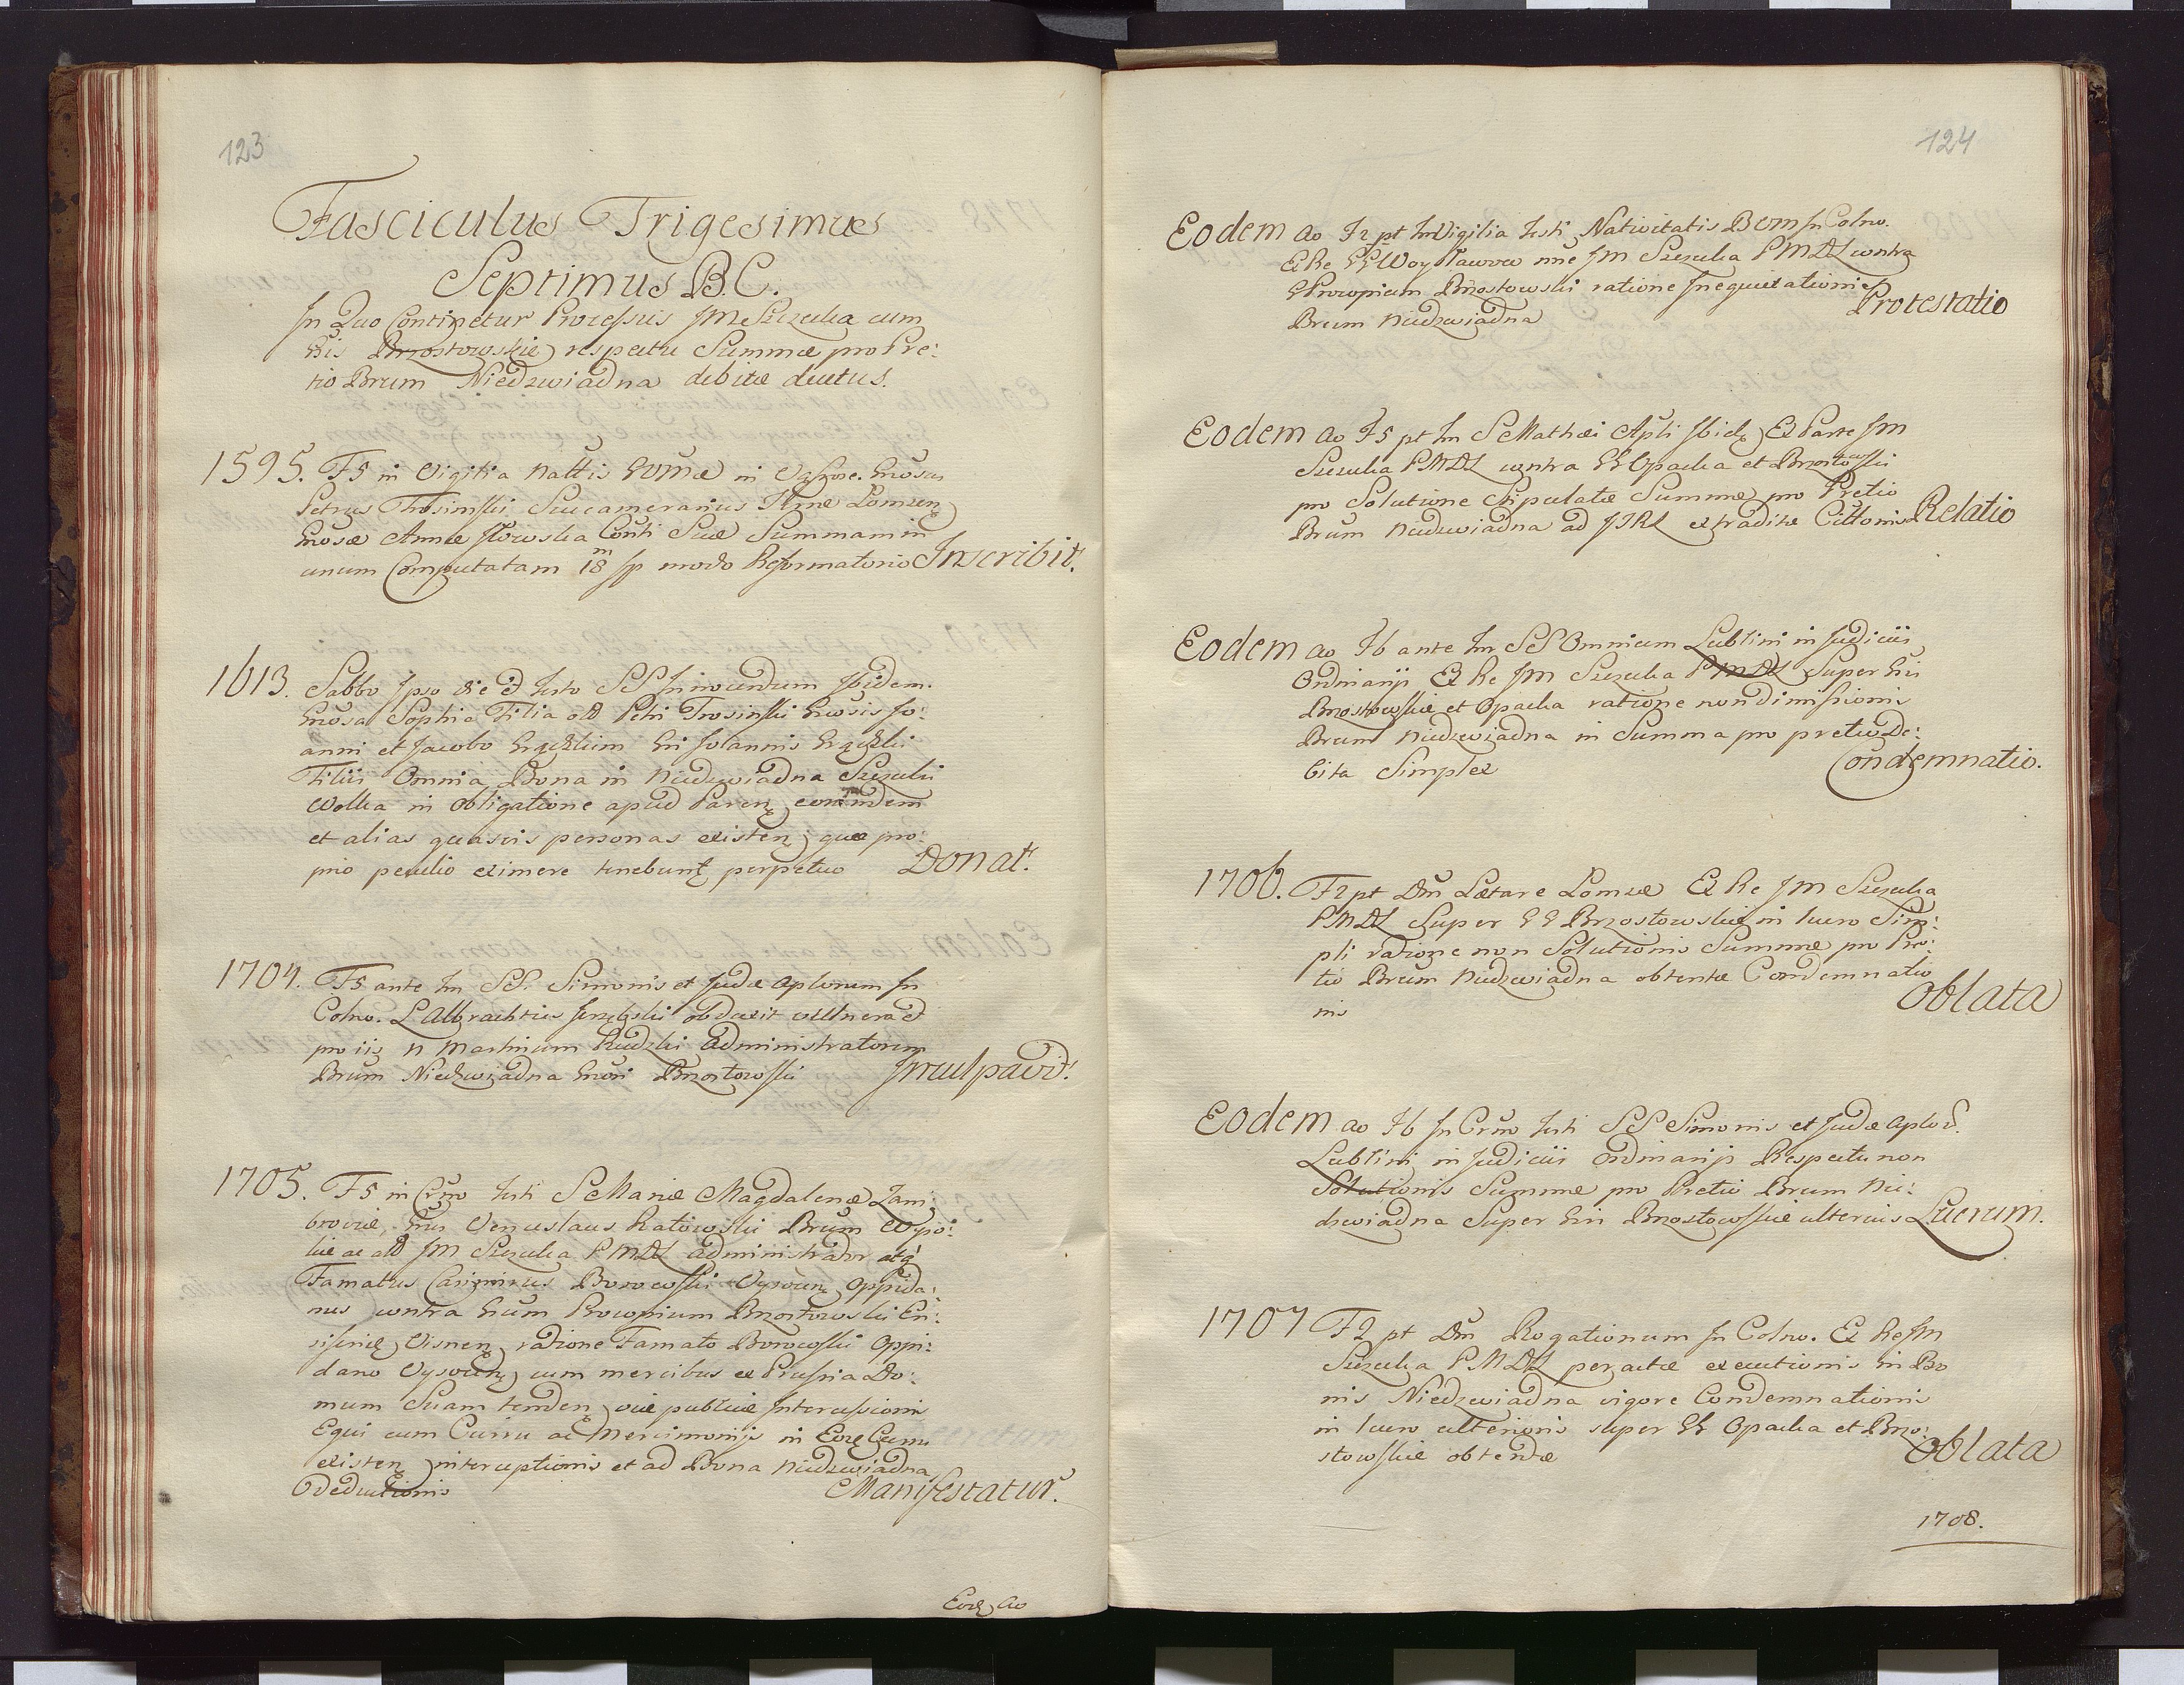 123
Fasciculus Trigesimus
Septimus B.C.
In Quo Continetur Processus JM Szczuka cum
GGis Brzostowskie respectu Summæ pro Pre:
tio Brum Niedzwiadna debitæ ductus.
1595. F5 in Vigilia Nattis in Gnosus
Petrus Trosinski Succamerarius Træ Lomzen
Gnosæ Annæ Conti Suæ Summam in
unum Computatam 18 m fp modo Reformatorio Inscribit.
1613. Sabbo Ipso die et festo SS Innocentum Ibidem.
Gnosa Sophia Filia olt Petri Trosinski Gnosis Jo:
anni et Jacobo
Filiis Omnia Bona in Niedzwiadna Szczuki
Wolka in obligatione apud Paren eorundem
et alias quasvis personas existen quæ pro:
prio peculio eximere tenebunt perpetuo Donat.
1704. F5 ante fm SS. Simonis et Judæ Aplorum In
Colno. L Albrachtius obduxit vulnera et
pro iis n Martinum Rudzki Administratorem
Brum Niedzwiadna Gnosi Brzostowski Inculpavit.
1705. F5 in Crno festi S Mariæ Magdalenæ Zam:
broviæ, Gnus Venceslaus Ratowski Brum Wypo:
kie ac olt JM Szczuka PMDL Administrator atq
Famatus Casimirus Borowski oppida:
nus contra Gnum Procopium Brzostowski En:
siferid Visnen ratione Famato Borowski oppi:
dano cum mercibus ex Prussia Do:
mum Suam tenden viæ publicæ Intercussionis
Equi cum Curru ac Mercimonijs in Eoq Curru
existen interceptionis et ad Bona Niedzwiadna
Deductionis Manifestatur.
Eod Ao
124
Eodem ao F2 pt In Vigilia festi Nativitatis BVM In Colno.
Ex Re GG nne JM Szczuka PMDL contra
G Procopium Brzostowski ratione Inequitationis
Brum Niedzwiadna Protestatio
Eodem ao F5 pt fm S Mathæi Apli Ibid Ex Parte JM
Szczuka PMDL contra GG Opacka et Brzostowski
pro Solutione Stipulatæ Summæ pro Pretio
Brum Niedzwiadna ad JTRL extraditæ Cittonis Relatio
Eodem ao F6 ante fm SS Omnium Lublini in Judiciis
Ordinarijs Ex Re JM Szczuka PMDL Super Gis
Brzostowskie et Opacka ratione non dimissionis
Brum Niedzwiadna in Summa pro pretio De:
bita Simplex Condemnatio.
1706. F2 pt Dm Lætare Lomzæ Ex Re JM Szczuka
PMDL Super GG Brzostowskie in lucro Sim:
pli ratione non Solutionis Summæ pro Pre:
tio Brum Niedzwiadna obtentæ Condemnatio
nis Oblata
Eodem ao F6 In Crno festi SS Simonis et Judæ Aplor.
Lublini in Judiciis Ordinarijs Respectu non
Solutionis Summæ pro Pretio Brum Nie:
dzwiadna Super Gis Brzostowskie ulterius Lucrum.
1707 F2 pt Dm Rogationum In Colno. Ex Re JM
Szczuka PMDL peractæ executionis in Bo
nis Niedzwiadna vigore Condemnationis
in lucro ulterioris super GG Opacka et Brzo:
stowskie obtentæ Oblata
1708.